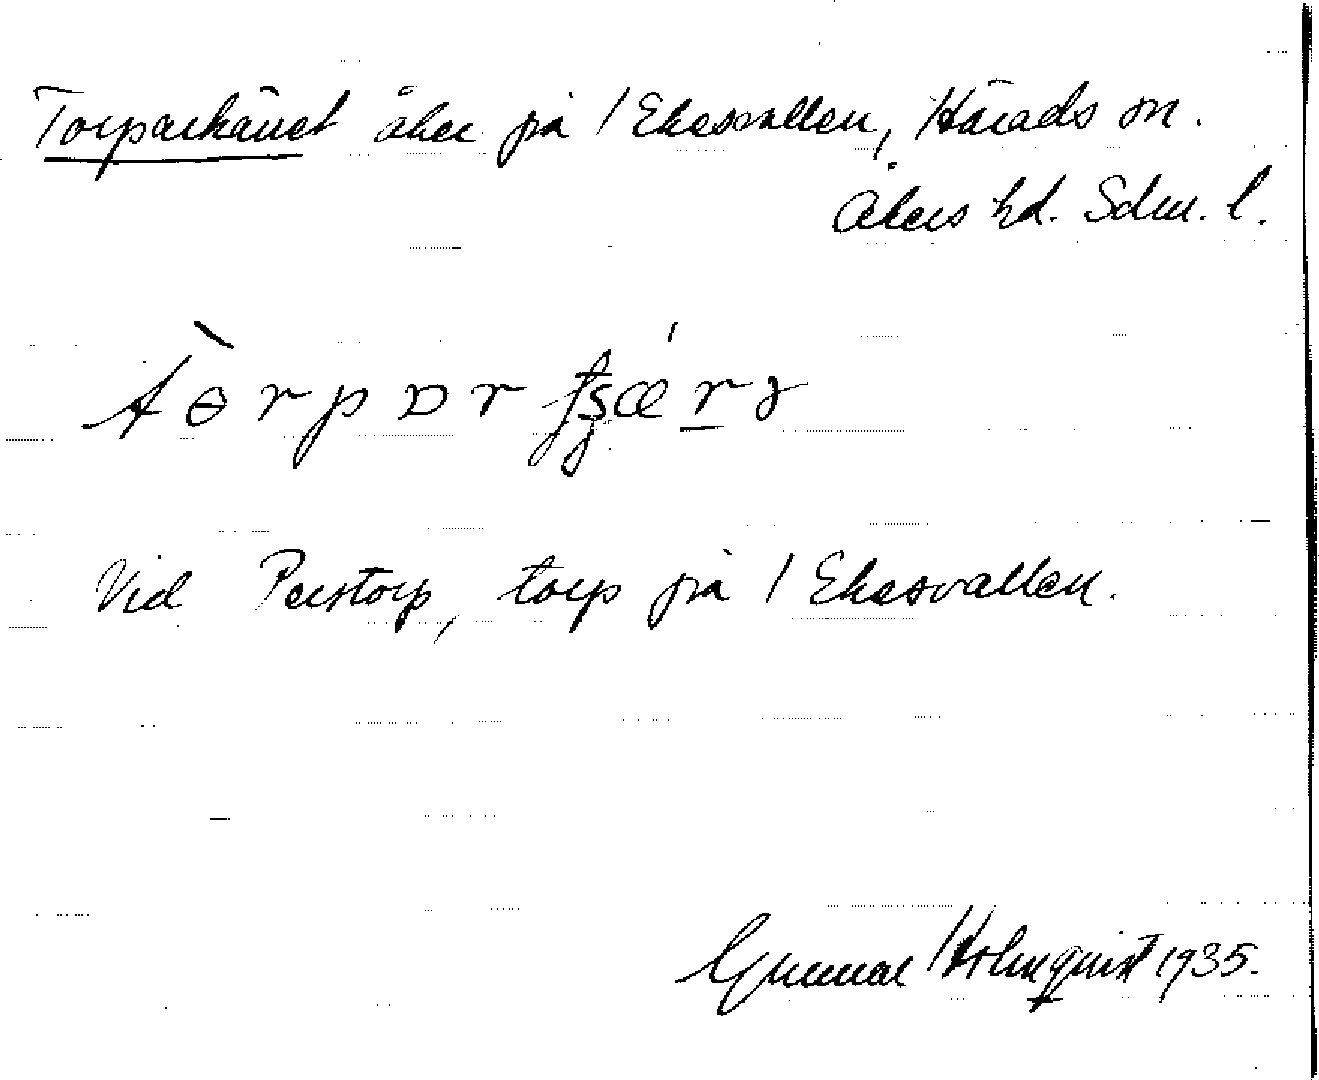 Torparkärret åker på / Ekesvallen, Härads sn.
Åkers hd. Sdm. l.
Vid Perstorp, torp på / Ekesvallen.
Gunnar Holmquist 1935.